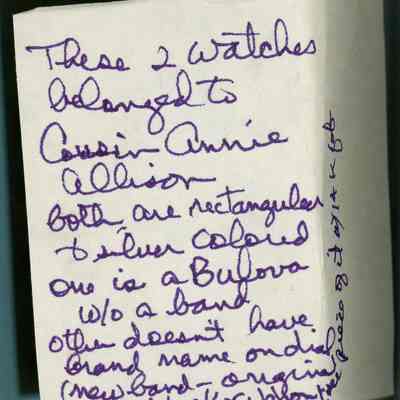 These 2 watches
belonged to
Cousin Annie
Allison
both are rectangular
+ silver colored
one is a Bulova
w/o a band
other doesn't have
brand name on dial
(new band - original